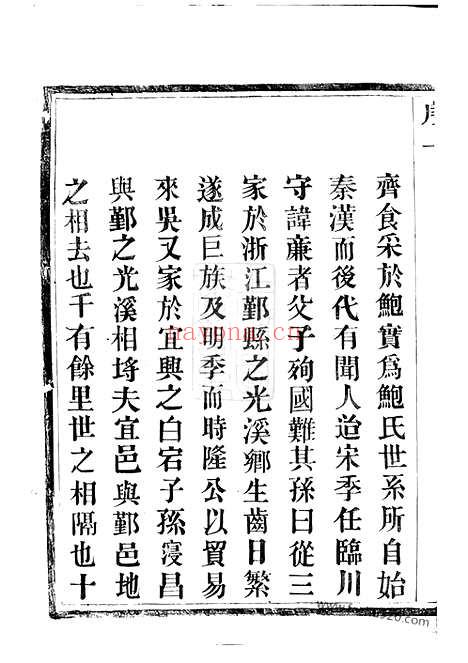 序一
齊食采於鮑實爲鮑氏世系所自始
秦漢而後代有聞人迨宋季任臨川
守諱亷者父子殉國難其孫曰從三
家於浙江鄞縣之光溪鄉生齒日繁
遂成巨族及明季而時隆公以貿易
來吳又家於宜興之白宕子孫寖昌
與鄞之光溪相埓夫宜邑與鄞邑地
之相去也千有餘里世之相隔也十
nayong.cn